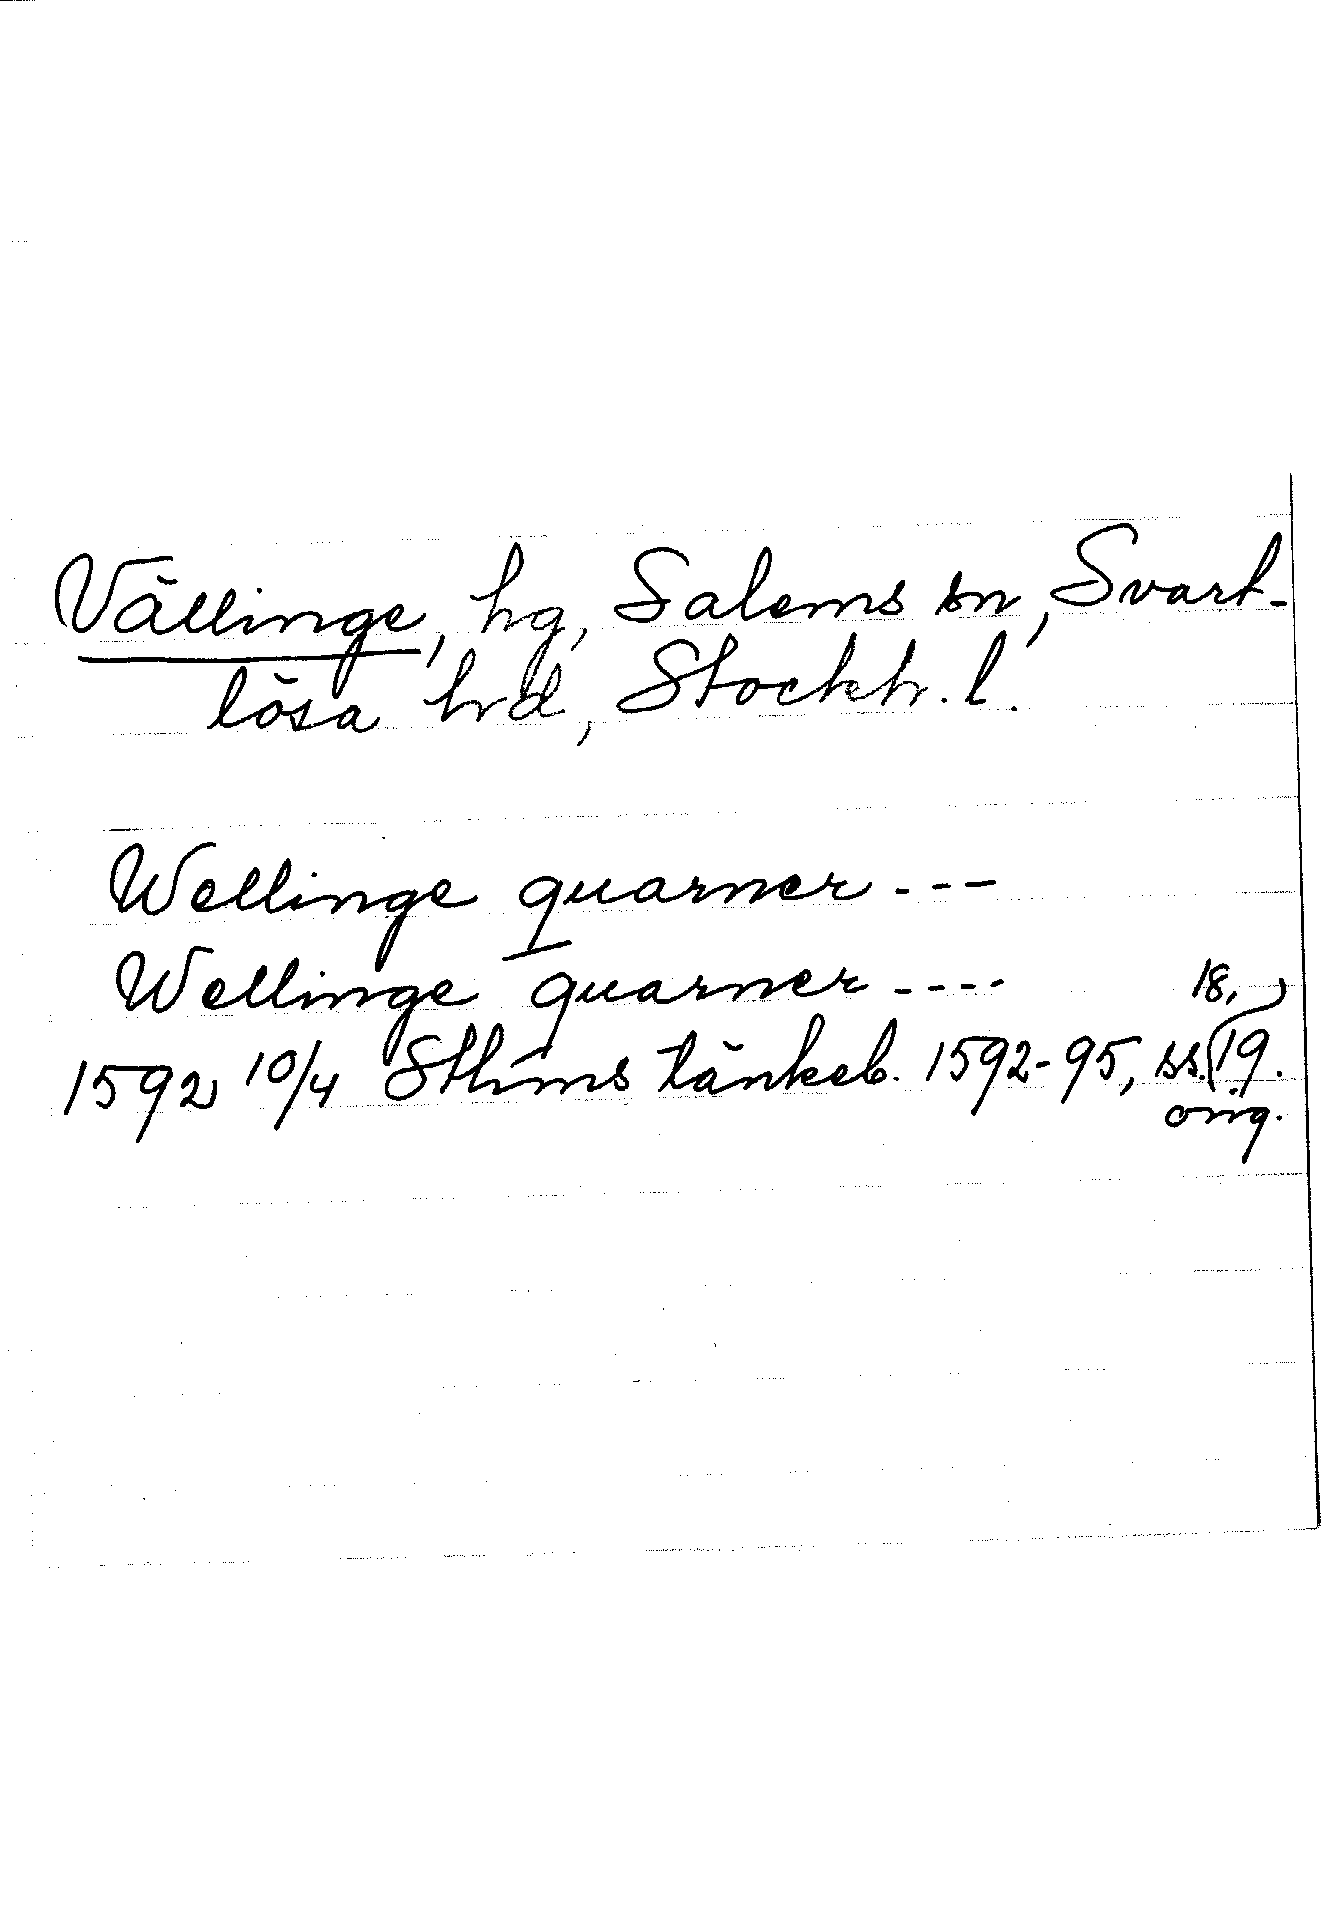 Vällinge, hg, Salems sn, Svart-
lösa hd, Stockh. l.
Wellinge quarner - - -
Wellinge quarner - - - -
1592 10/4 Sthms tänkeb. 1592-95, ss. 18, 19.
orig.